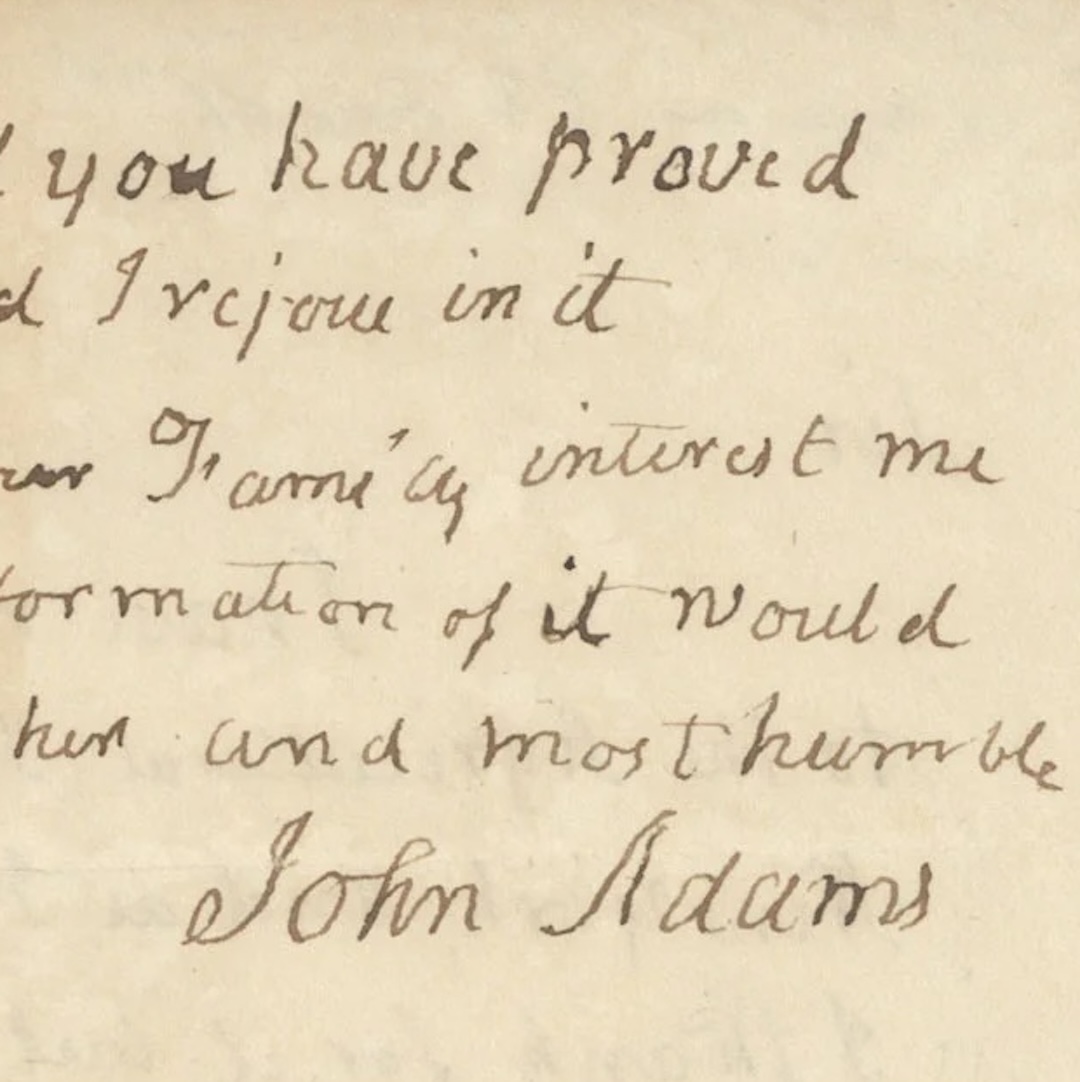 you have proved
d I rejoice in it
Family interest me
formation of it would
and most humble
John Adams